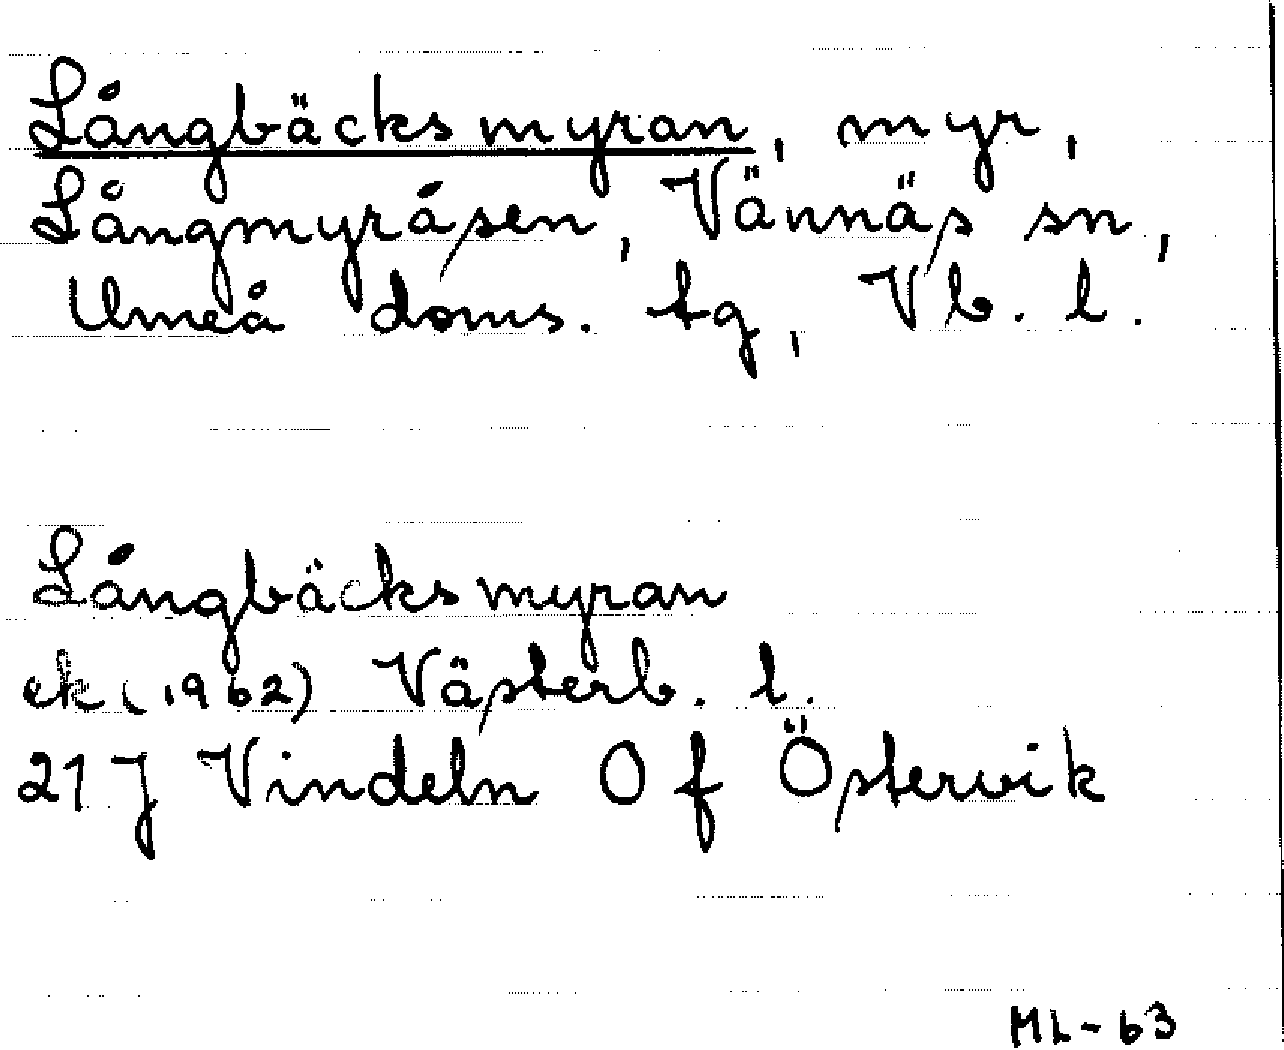 Långbäcksmyran, myr,
Långmyråsen, Vännäs sn,
Umeå doms. tg, Vb. l.
Långbäcksmyran
ek (1962) Västerb. l.
21 J Vindeln O f Östervik
ML-63